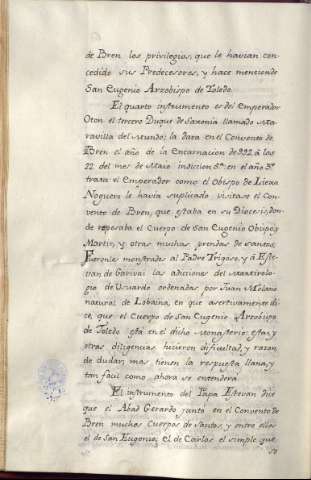 de Bren los privilegios, que le havian con
cedido sus Predecesores, y hace mencion de
San Eugenio Arzobispo de Toledo.
El quarto instrumento es del Emperador
Oton el tercero Duque de Saxonia llamado Ma
ravilla del Mundo; la data en el Convento de
Bren el año de la Encarnacion de 992 á los
22 del mes de Maio indiccion 5ª en el año 3º
trata el Emperador como el Obispo de Liexa
Noguero le havia suplicado visitase el Con
vento de Bren, que estaba en su Diocesis, don
de reposaba el Cuerpo de San Eugenio Obispo y
Martir, y otras muchas prendas de Santos.
Fueronle mostradas al Padre Trigoso, y á Este
van de Garivai las adiciones del Martirolo
gio de Usuardo ordenadas por Juan Molano
natural de Lobaina, en que asertivamente di
ce, que el Cuerpo de San Eugenio Arzobispo
de Toledo está en el dicho Monasterio: estas, y
otras diligencias hicieron dificultad, y razon
de dudar, mas tienen la respuesta llana, y
tan facil como ahora se entenderá
El instrumento del Papa Estevan dice
que el Abad Gerardo junta en el Convento de
Bren muchos Cuerpos de Santos, y entre ellos
el de San Eugenio, el de Carlos el simple que